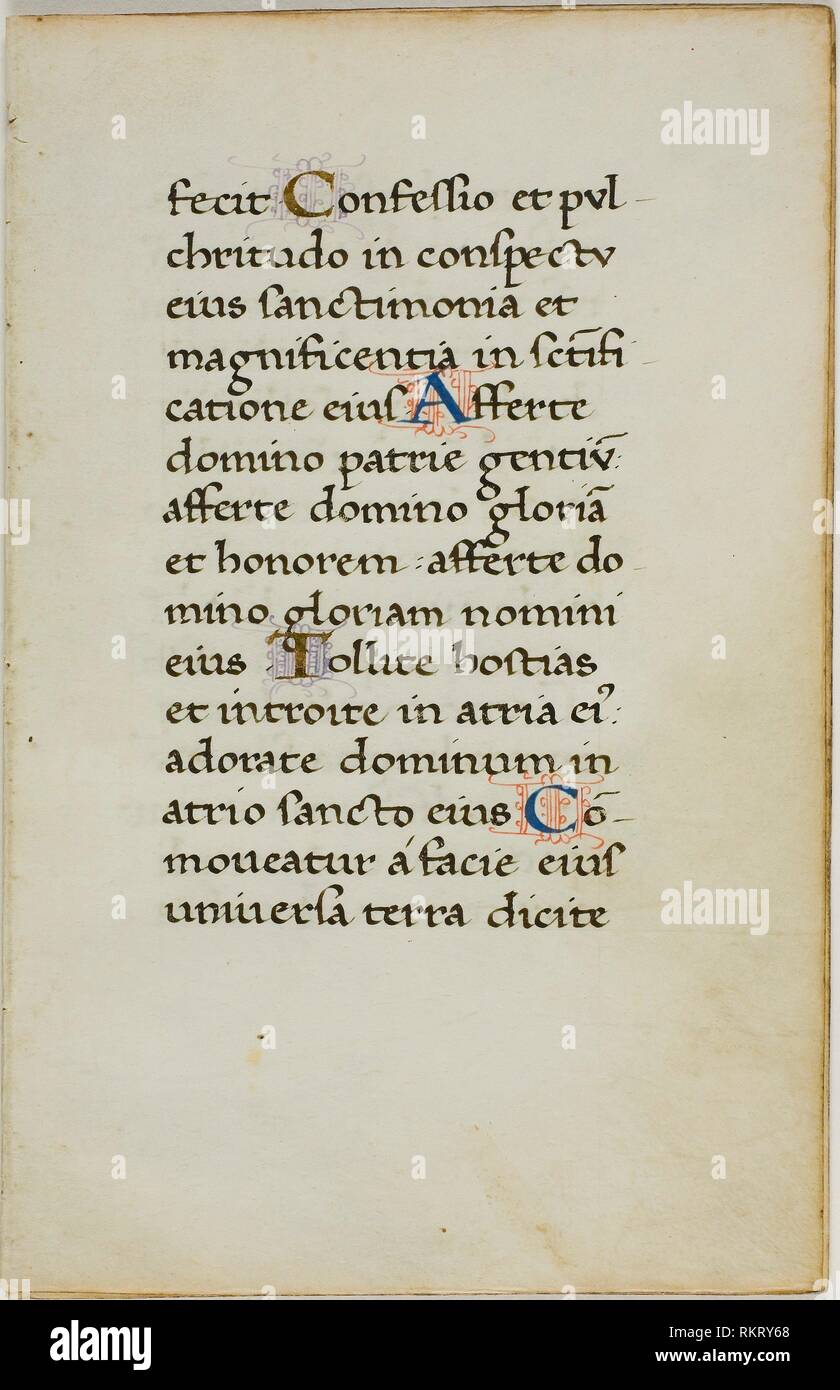 fecit Confessio et pvl-
chritudo in conspectv
eius sanctimonia et
magnificentia in sctīfi-
catione eius Afferte
domino patrie gentiv̄:
afferte domino gloriā
et honorem : afferte do-
mino gloriam nomini
eius Tollite hostias
et introite in atria ei⁹:
adorate dominum in
atrio sancto eius Cō-
moueatur á facie eius
uniuersa terra dicite
alamy
alamy
alamy
Image ID: RKRY68
www.alamy.com